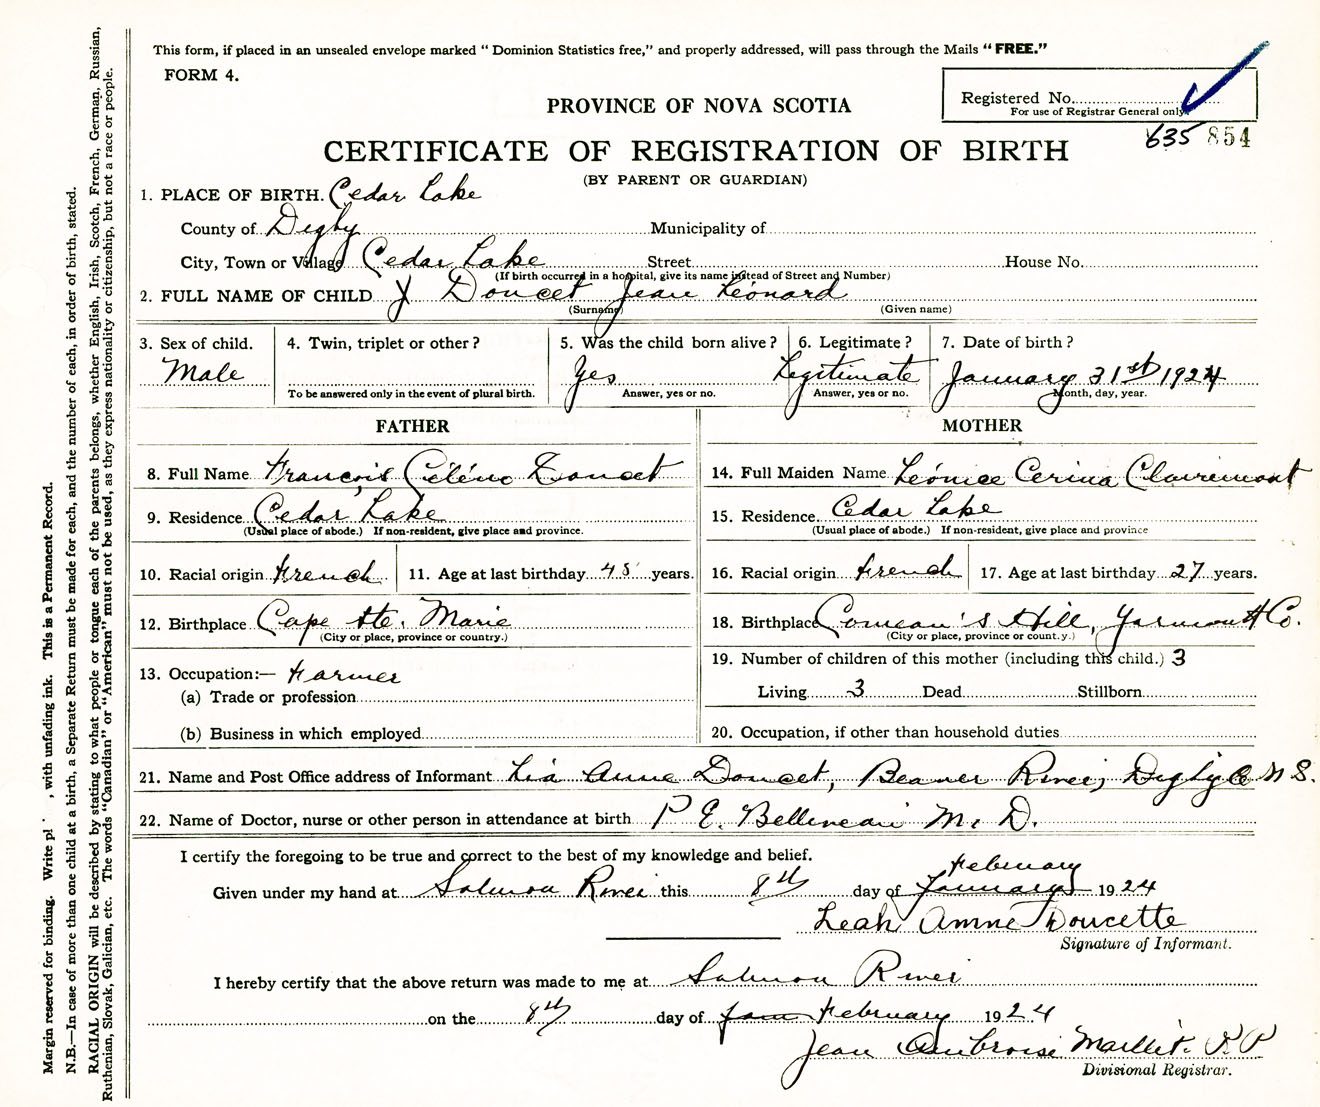 This form, if placed in an unsealed envelope marked "Dominion Statistics free," and properly addressed, will pass through the Mails "FREE."
FORM 4.
Registered No.
For use of Registrar General only
PROVINCE OF NOVA SCOTIA
635 854
CERTIFICATE OF REGISTRATION OF BIRTH
(BY PARENT OR GUARDIAN)
1. PLACE OF BIRTH. Cedar Lake
County of Digby Municipality of
City, Town or Village Cedar Lake Street House No.
(If birth occurred in a hospital, give its name instead of Street and Number)
2. FULL NAME OF CHILD Doucet Jean Léonard
(Surname) (Given name)
3. Sex of child. 4. Twin, triplet or other? 5. Was the child born alive? 6. Legitimate? 7. Date of birth?
Male Yes Legitimate January 31st 1924
To be answered only in the event of plural birth. Answer, yes or no. Answer, yes or no. Month, day, year.
FATHER
8. Full Name François Céléno Doucet
9. Residence Cedar Lake
(Usual place of abode.) If non-resident, give place and province.
10. Racial origin French 11. Age at last birthday 45 years.
12. Birthplace Cape Ste. Marie
(City or place, province or country.)
13. Occupation:— Farmer
(a) Trade or profession
(b) Business in which employed
MOTHER
14. Full Maiden Name Léonice Cerina Clairemont
15. Residence Cedar Lake
(Usual place of abode.) If non-resident, give place and province
16. Racial origin French 17. Age at last birthday 27 years.
18. Birthplace Comeau's Hill, Yarmouth Co.
(City or place, province or count.y.)
19. Number of children of this mother (including this child.) 3
Living 3 Dead Stillborn
20. Occupation, if other than household duties
21. Name and Post Office address of Informant Lia Anne Doucet, Beaver River, Digby Co N S.
22. Name of Doctor, nurse or other person in attendance at birth P. E. Belliveau M. D.
I certify the foregoing to be true and correct to the best of my knowledge and belief.
February
Given under my hand at Salmon River this 8th day of January 1924
Leah Annne Doucette
Signature of Informant.
I hereby certify that the above return was made to me at Salmon River
on the 8th day of Jan February 1924
Jean Ambroise Maillet. P. P
Divisional Registrar.
Margin reserved for binding. Write pl , with unfading ink. This is a Permanent Record.
N.B.—In case of more than one child at a birth, a Separate Return must be made for each, and the number of each, in order of birth, stated.
RACIAL ORIGIN will be described by stating to what people or tongue each of the parents belongs, whether English, Irish, Scotch, French, German, Russian,
Ruthenian, Slovak, Galician, etc. The words "Canadian" or "American" must not be used, as they express nationality or citizenship, but not a race or people.